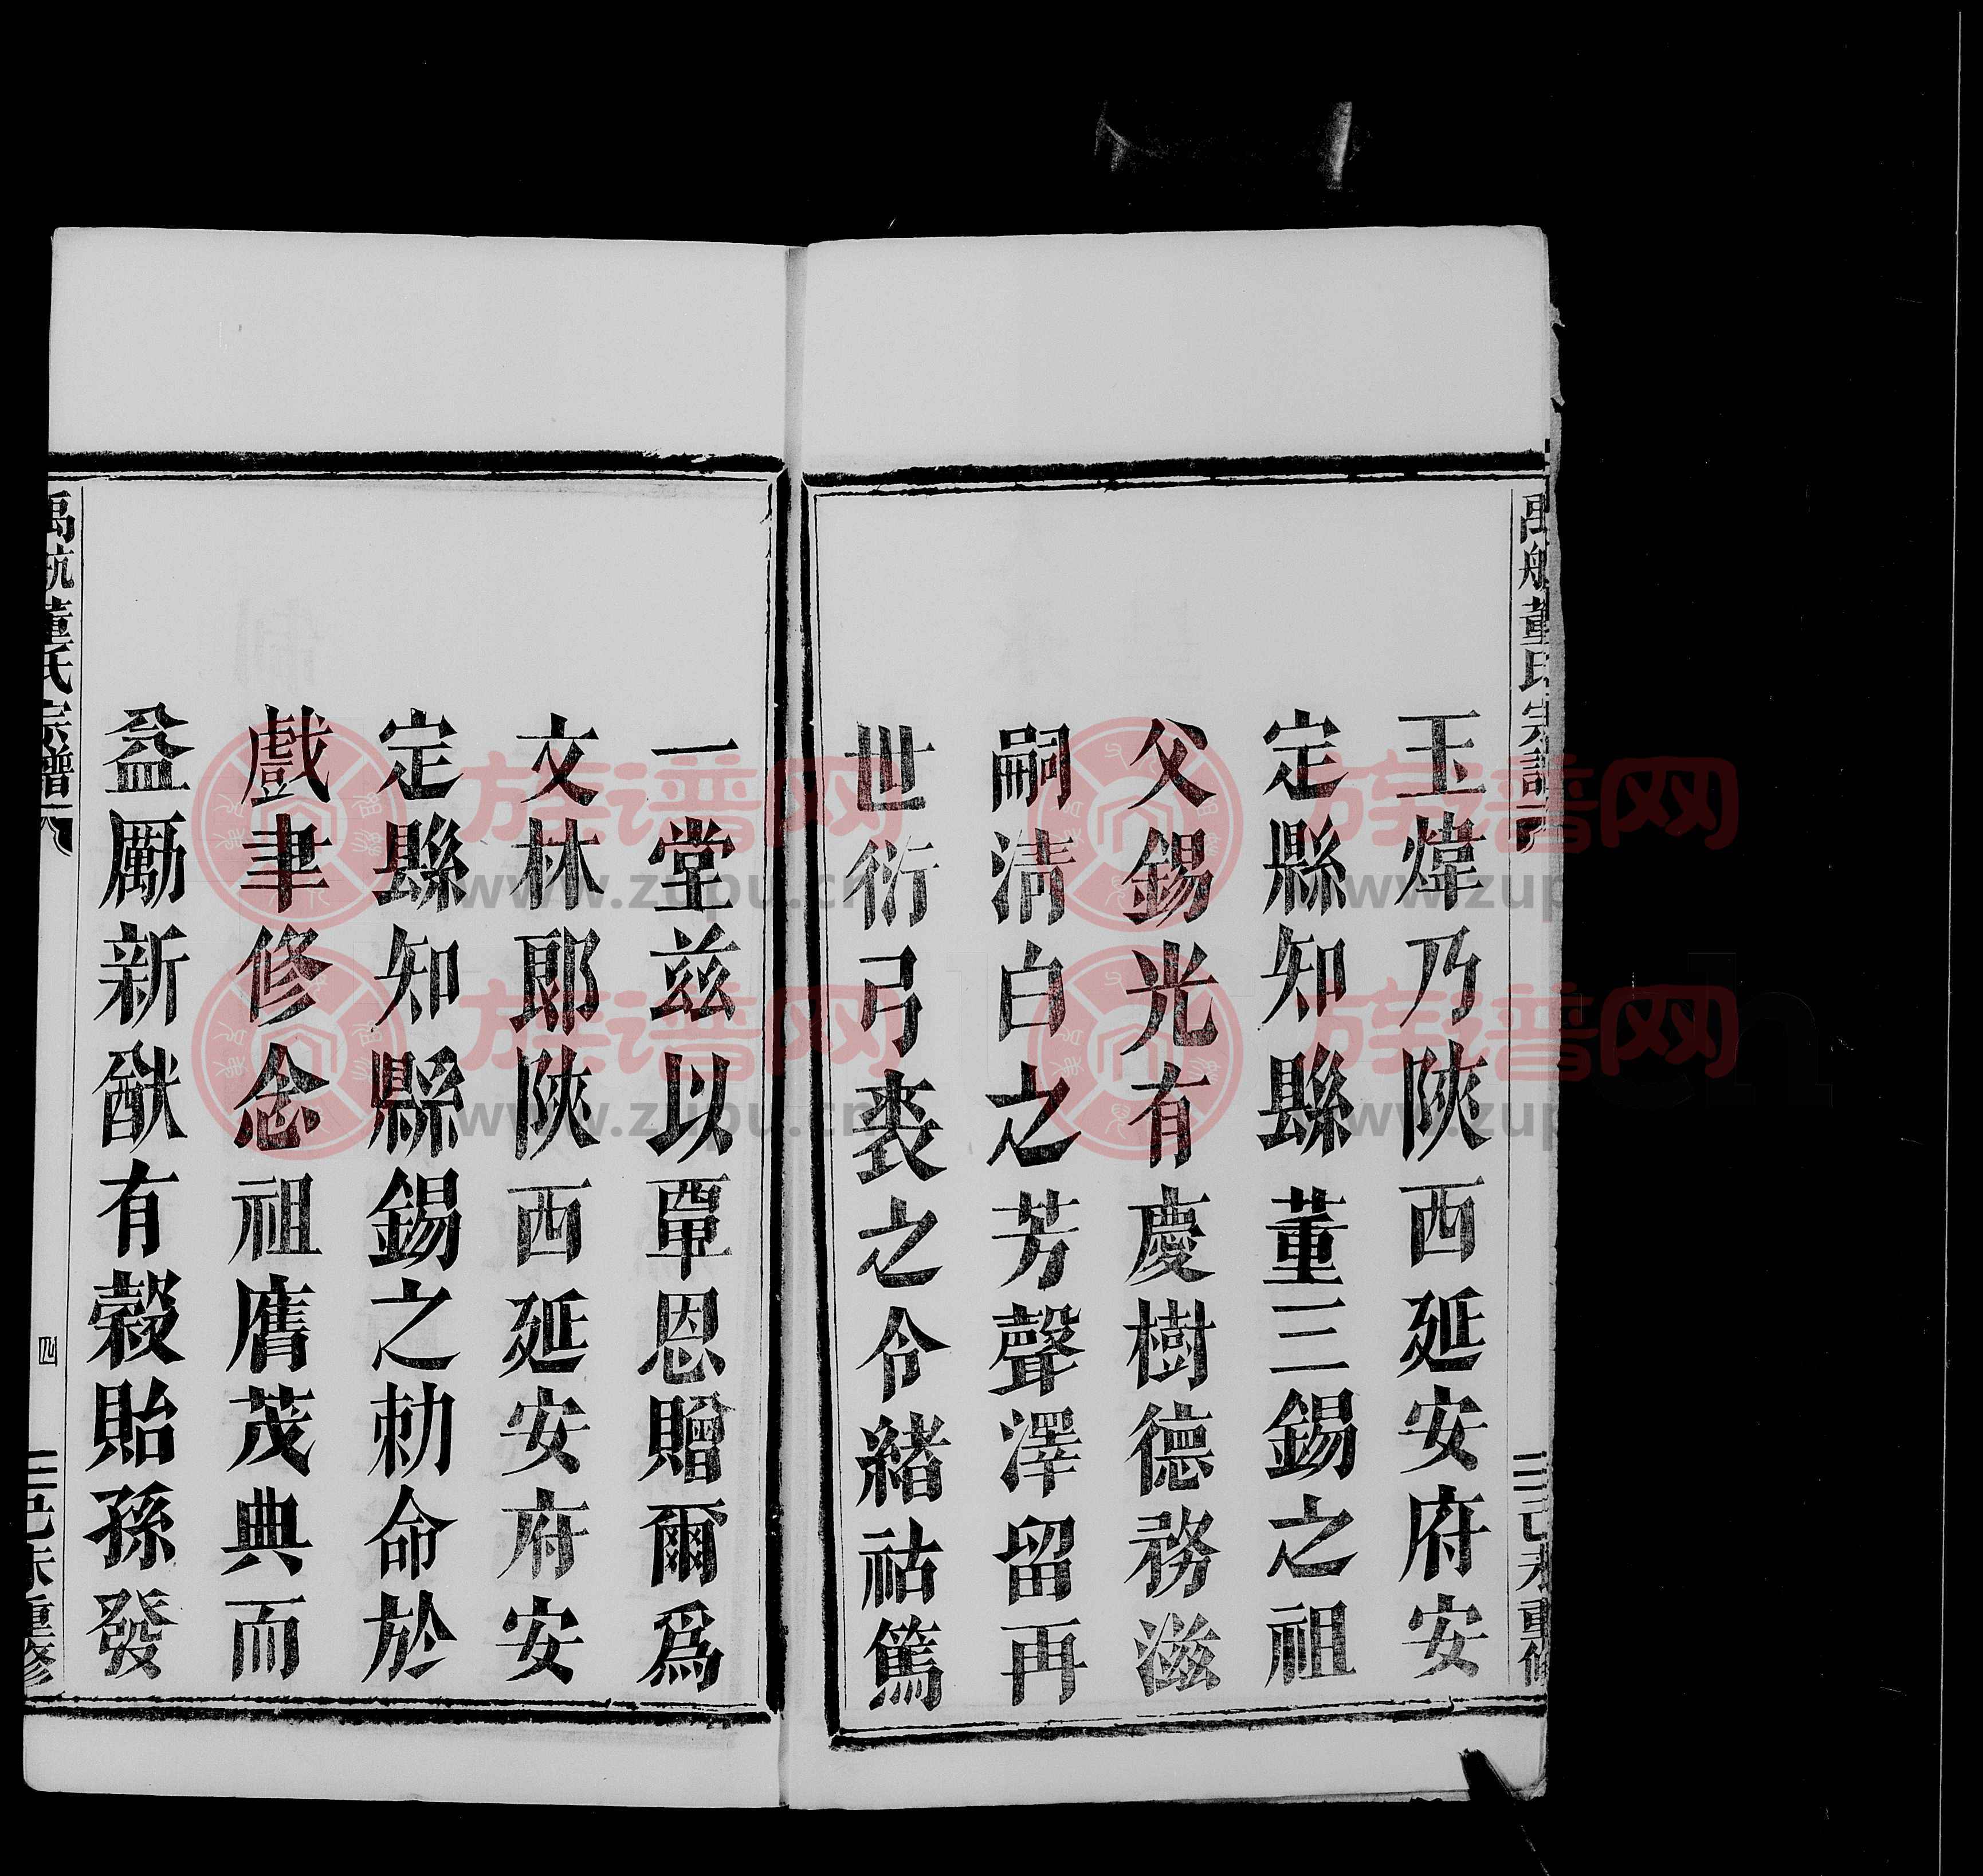 禹航董氏宗譜
玉煒乃陝西延安府安
定縣知縣董三錫之祖
父錫光有慶樹德務滋
嗣淸白之芳聲澤留再
世衍弓裘之令緒祜篤
一堂茲以覃恩贈爾爲
文林郎陝西延安府安
定縣知縣錫之勅命於
戲聿修念祖膺茂典而
益勵新猷有穀貽孫發
禹航董氏宗譜
四
己未重修
族谱网
www.zupu.cn